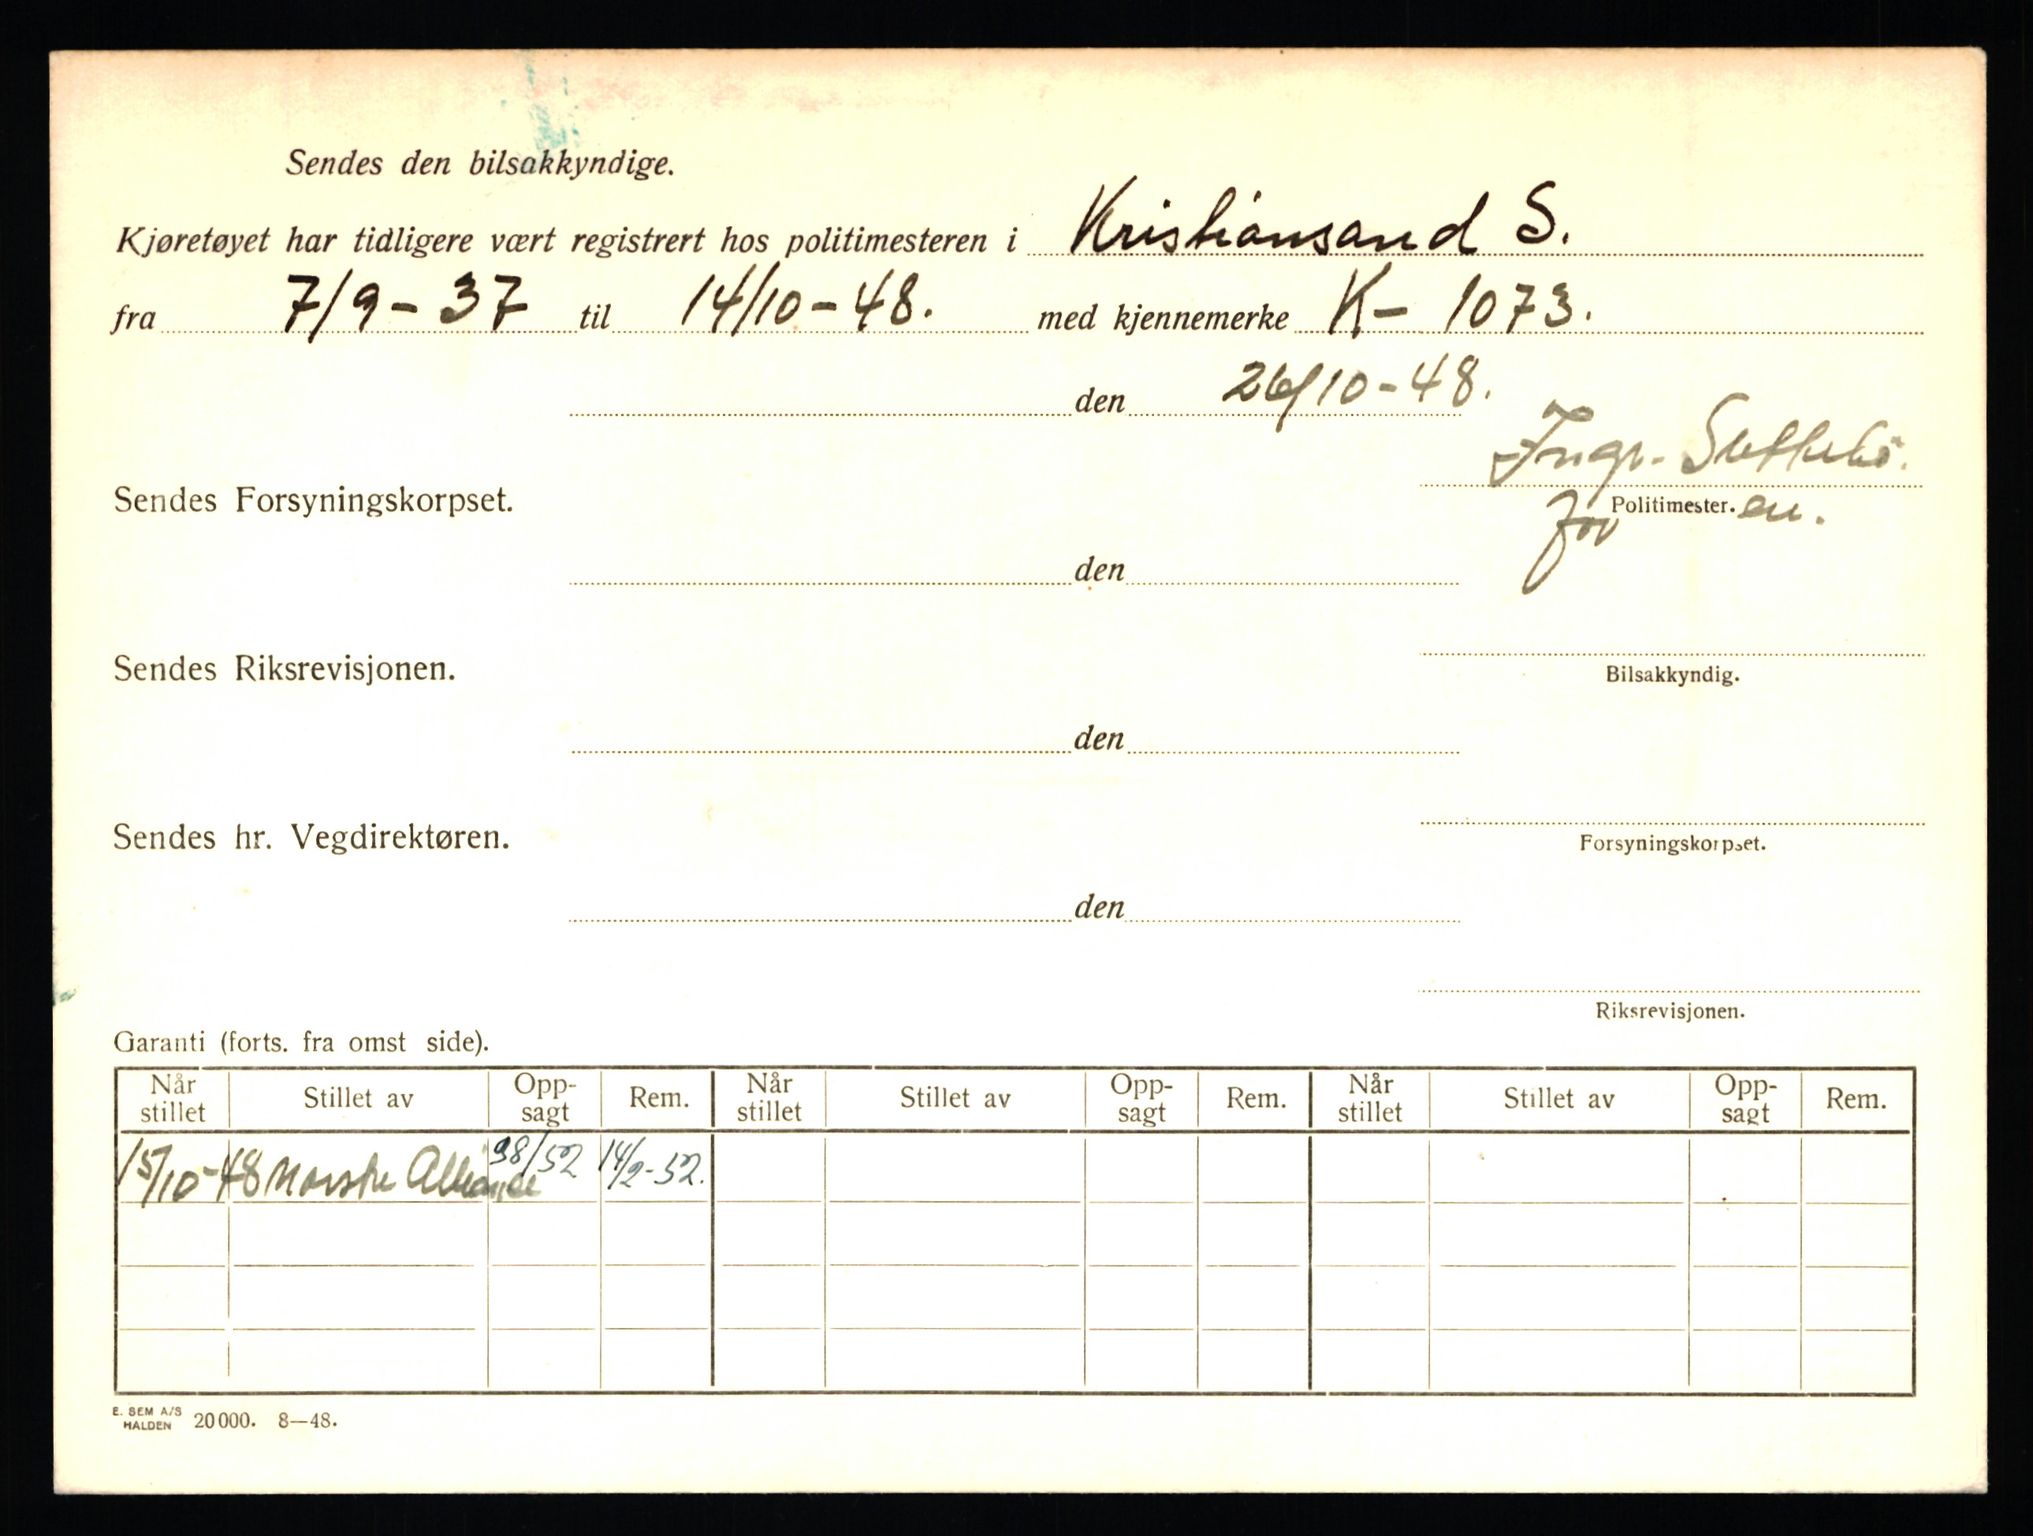 Sendes den bilsakkyndige.
Kjøretøyet har tidligere vært registrert hos politimesteren i Kristiansand S.
fra 7/9-37 til 14/10-48. med kjennemerke K- 1073.
den 26/10-48.
Sendes Forsyningskorpset.
for Politimester.en.
den
Sendes Riksrevisjonen.
Bilsakkyndig.
den
Sendes hr. Vegdirektøren.
Forsyningskorpset.
den
Riksrevisjonen.
Garanti (forts. fra omst side).
Når stillet Stillet av Opp-sagt Rem. Når stillet Stillet av Opp-sagt Rem. Når stillet Stillet av Opp-sagt Rem.
15/10-48 Norske Alliance 98/52 14/2-52.
E. SEM A/S
HALDEN 20000. 8—48.